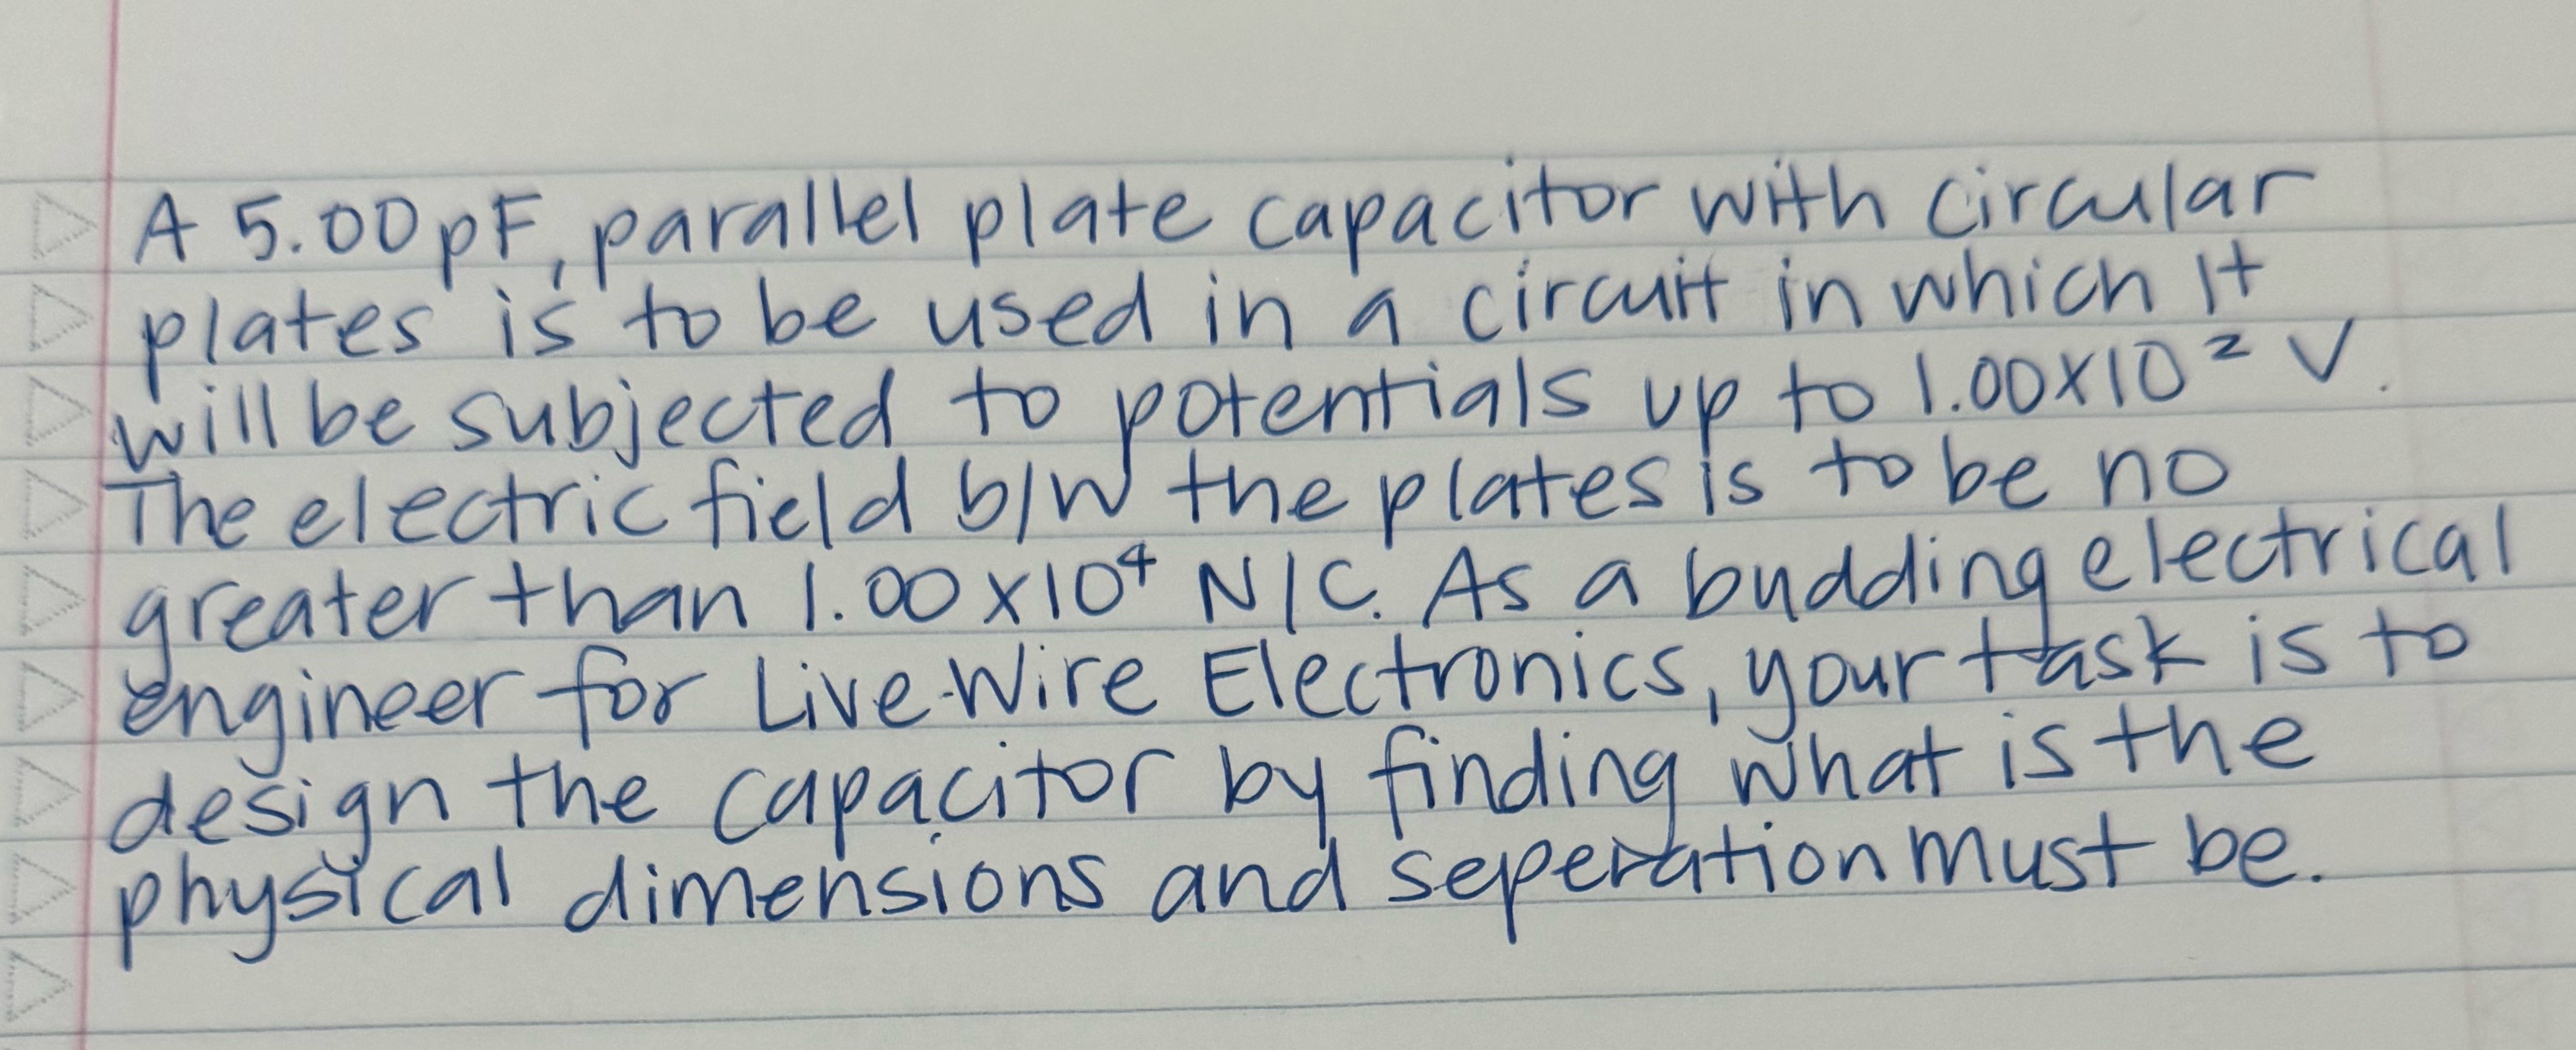 A 5.00pF, parallel plate capacitor with circular
plates is to be used in a circuit in which it
will be subjected to potentials up to 1.00x10² V.
The electric field b/w the plates is to be no
greater than 1.00x10⁴ N/C. As a budding electrical
engineer for Live-Wire Electronics, your task is to
design the capacitor by finding what is the
physical dimensions and seperation must be.